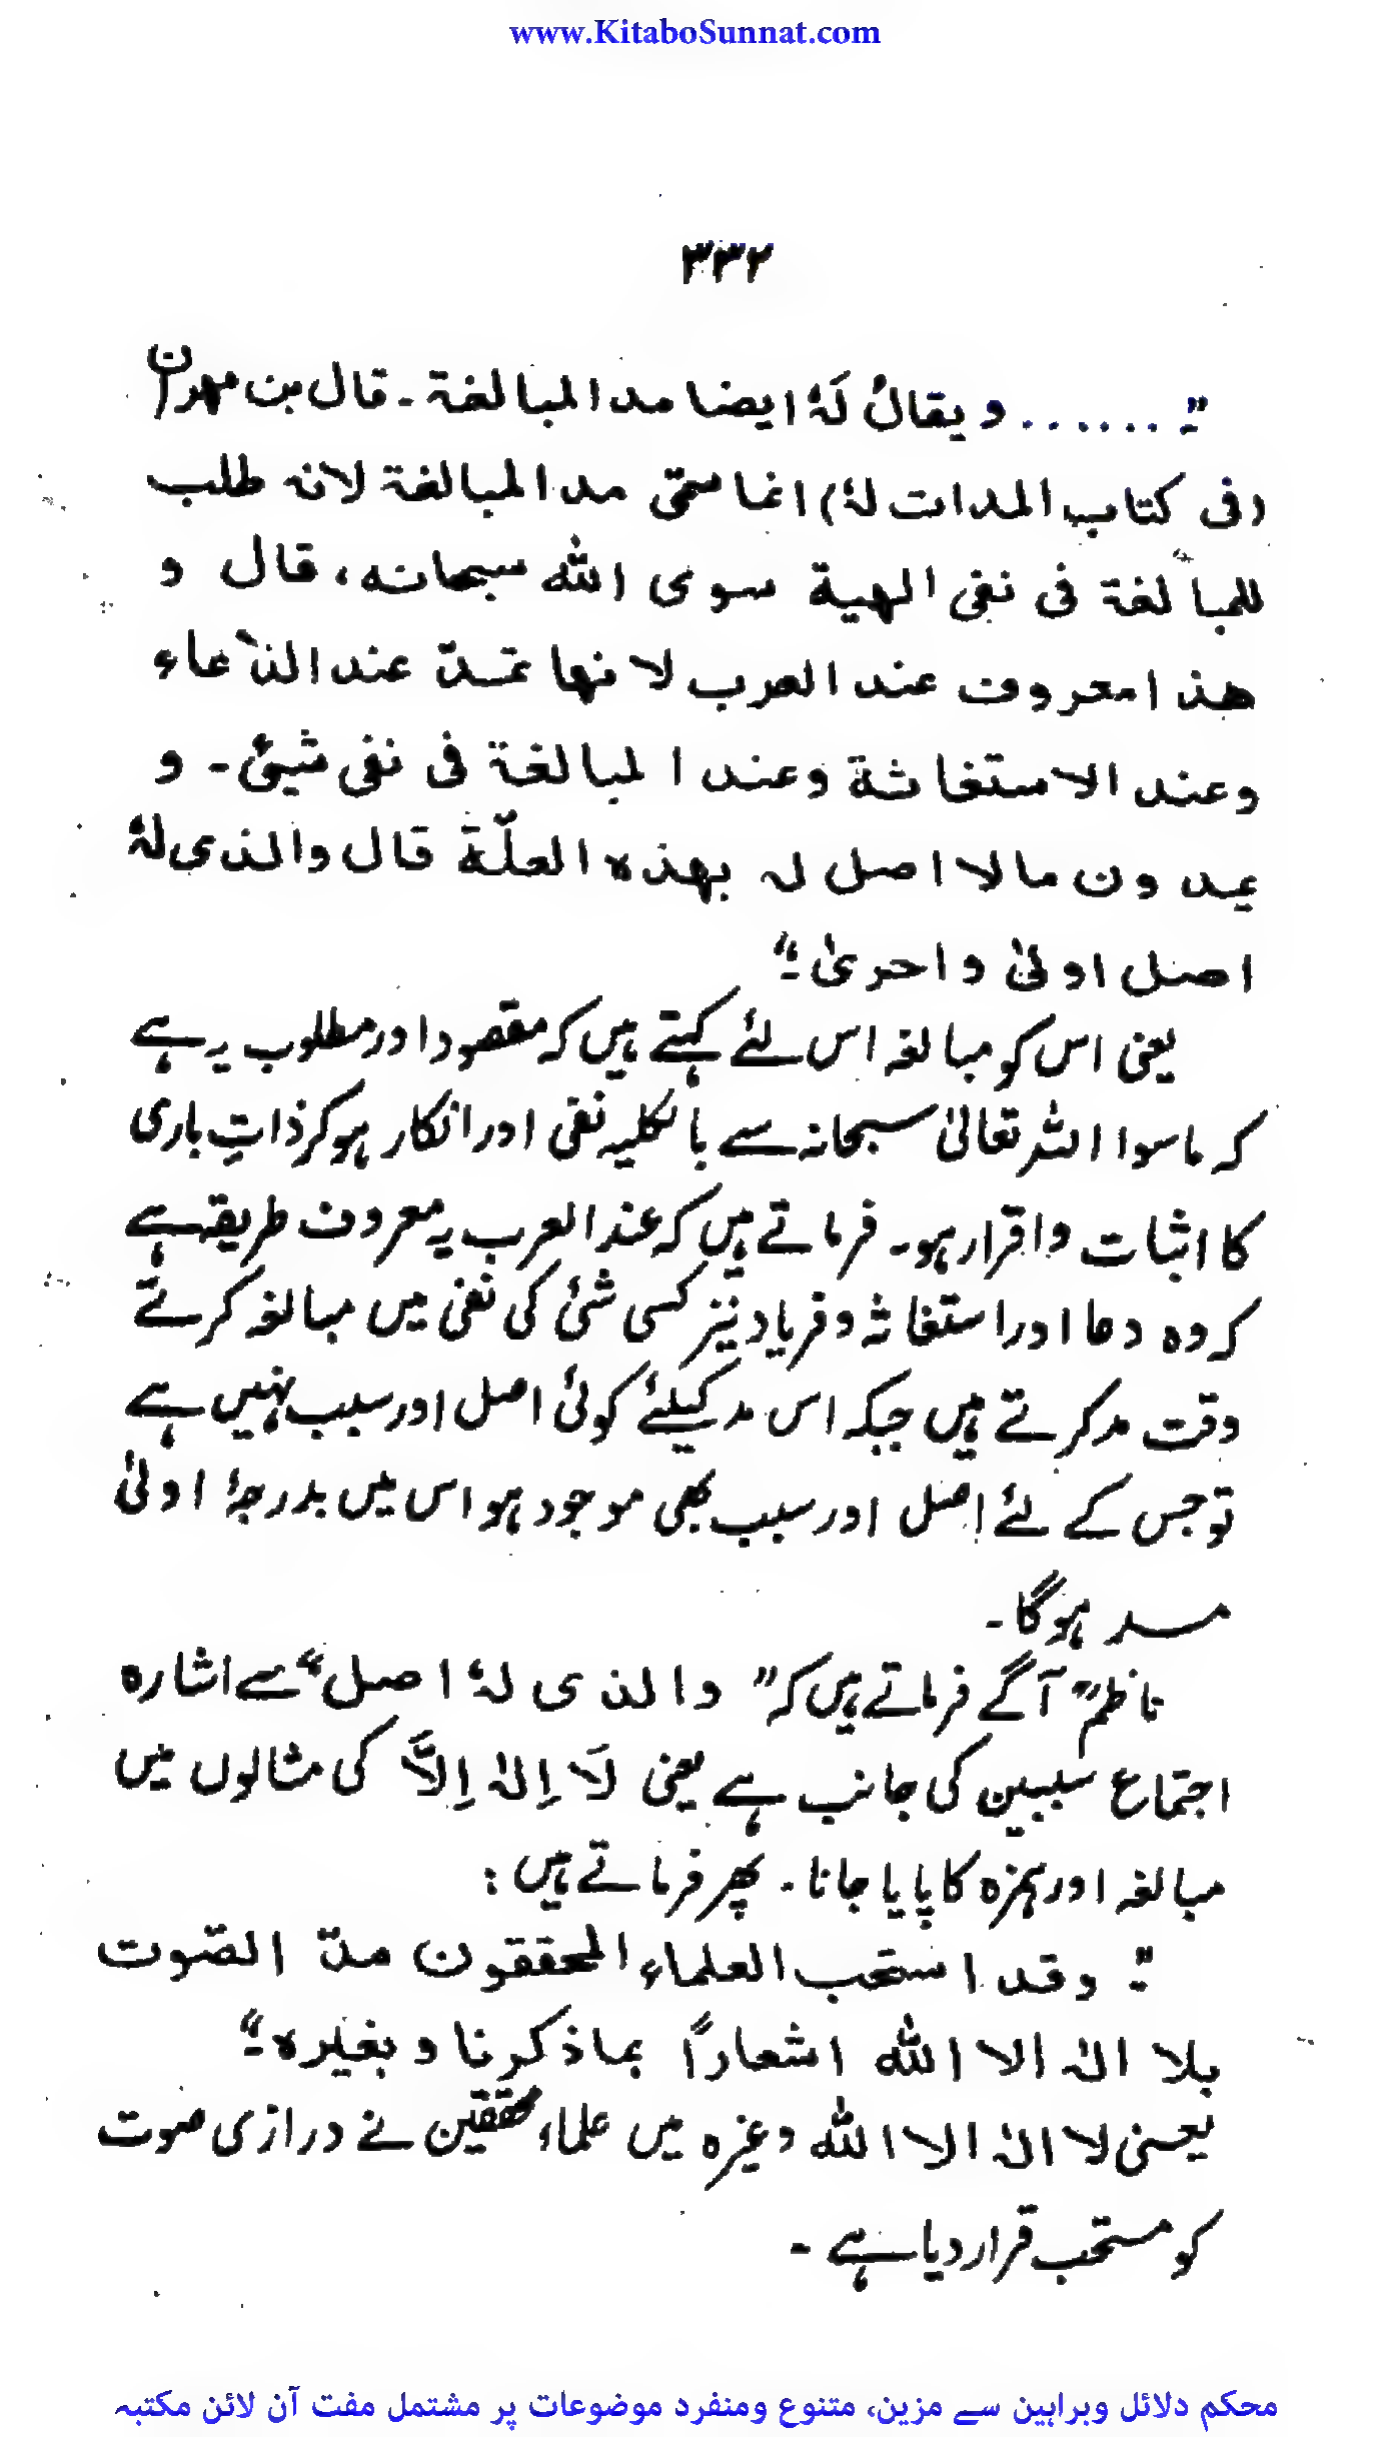 www.KitaboSunnat.com
۳۳۲
"۔ ...... و یقالُ لَہٗ ایضا مد المبالغۃ۔ قال بن مھران
(فی کتاب المدات لہٗ) انما سمّی مد المبالغۃ لانہ طلب
للمبالغۃ فی نفی الہیۃ سوی اللّٰہ سبحانہ، قال و
ھذا معروف عند العرب لانھا تمدّ عند الدّعاء
وعند الاستغاثۃ وعند المبالغۃ فی نفی شیئ۔ و
یمدون مالا اصل لہ بھذہ العلّۃ قال والذی لہٗ
اصل اولیٰ واحریٰ۔"
یعنی اس کو مبالغہ اس لئے کہتے ہیں کہ مقصود اور مطلوب یہ ہے
کہ ماسوا اللہ تعالیٰ سبحانہ سے بالکلیہ نفی اور انکار ہو کر ذاتِ باری
کا اثبات واقرار ہو۔ فرماتے ہیں کہ عند العرب یہ معروف طریقہ ہے
کہ وہ دعا اور استغاثہ و فریاد نیز کسی شئ کی نفی میں مبالغہ کرتے
وقت مد کرتے ہیں جبکہ اس مد کیلئے کوئی اصل اور سبب نہیں ہے
تو جس کے لئے اصل اور سبب بھی موجود ہو اس میں بدرجۂ اولیٰ
مد ہوگا۔
ناظمؒ آگے فرماتے ہیں کہ "والذی لہٗ اصل" سے اشارہ
اجتماع سببین کی جانب ہے یعنی لَا اِلٰہَ اِلَّا کی مثالوں میں
مبالغہ اور ہمزہ کا پایا جانا۔ پھر فرماتے ہیں :
"۔ وقد استحب العلماء المحققون مدّ الصّوت
بلا الٰہ الا اللّٰہ اشعاراً بماذکرنا و بغیرہ۔"
یعنی لا الٰہ الا اللّٰہ وغیرہ میں علماء محققین نے درازی صوت
کو مستحب قرار دیا ہے ۔
محکم دلائل وبراہین سے مزین، متنوع ومنفرد موضوعات پر مشتمل مفت آن لائن مکتبہ